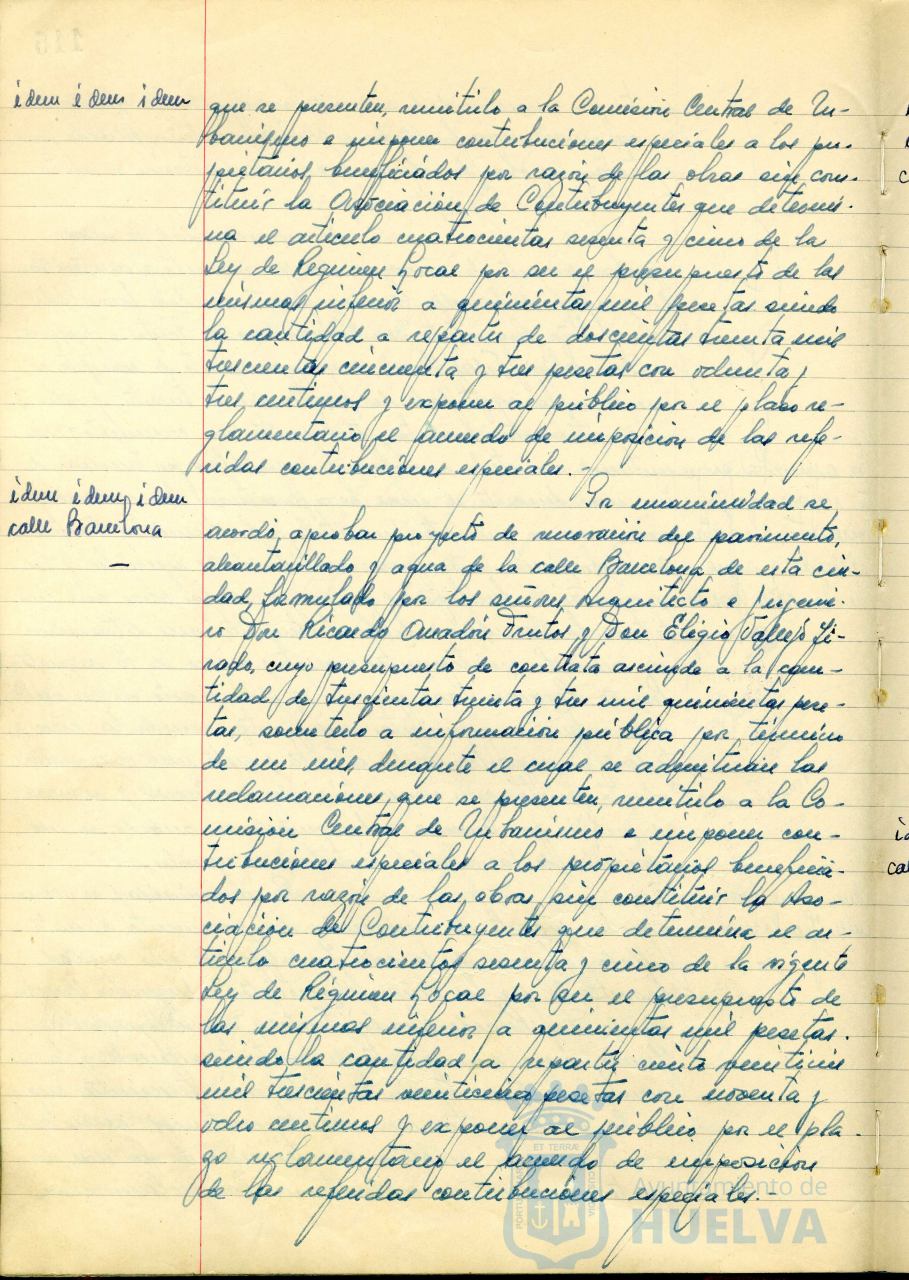 idem idem idem
que se presenten, remitirlo a la Comisión Central de Ur-
banismo e imponer contribuciones especiales a los pro-
pietarios beneficiados por razón de las obras sin cons-
tituir la Asociación de Contribuyentes que determi-
na el artículo cuatrocientos sesenta y cinco de la
Ley de Régimen Local por ser el presupuesto de las
mismas inferior a quinientas mil pesetas siendo
la cantidad a repartir de doscientas treinta mil
trescientas cincuenta y tres pesetas con ochenta y
tres centimos y exponer al público por el plazo re-
glamentario el acuerdo de imposición de las refe-
ridas contribuciones especiales.-
idem idem idem
calle Barcelona
Por unanimidad se
acordó, aprobar proyecto de renovación del pavimento,
alcantarillado y agua de la calle Barcelona de esta ciu-
dad, formulado por los señores Arquitecto e Ingenie-
ro Don Ricardo Anadón Frutos y Don Eligio Vallejo Ji-
rado, cuyo presupuesto de contrata asciende a la can-
tidad de trescientas treinta y tres mil quinientas pese-
tas, someterlo a información pública por término
de un mes, durante el cual se admitirán las
reclamaciones que se presenten, remitirlo a la Co-
misión Central de Urbanismo e imponer con-
tribuciones especiales a los propietarios beneficia-
dos por razón de las obras sin constituir la Aso-
ciación de Contribuyentes que determina el ar-
tículo cuatrocientos sesenta y cinco de la vigente
Ley de Régimen Local por ser el presupuesto de
las mismas inferior a quinientas mil pesetas.
siendo la cantidad a repartir ciento veinticinco
mil trescientas veinticinco pesetas con noventa y
ocho centimos y exponer al público por el pla-
zo reglamentario el acuerdo de imposición
de las referidas contribuciones especiales.-
ET TERRA
Ayuntamiento de
HUELVA